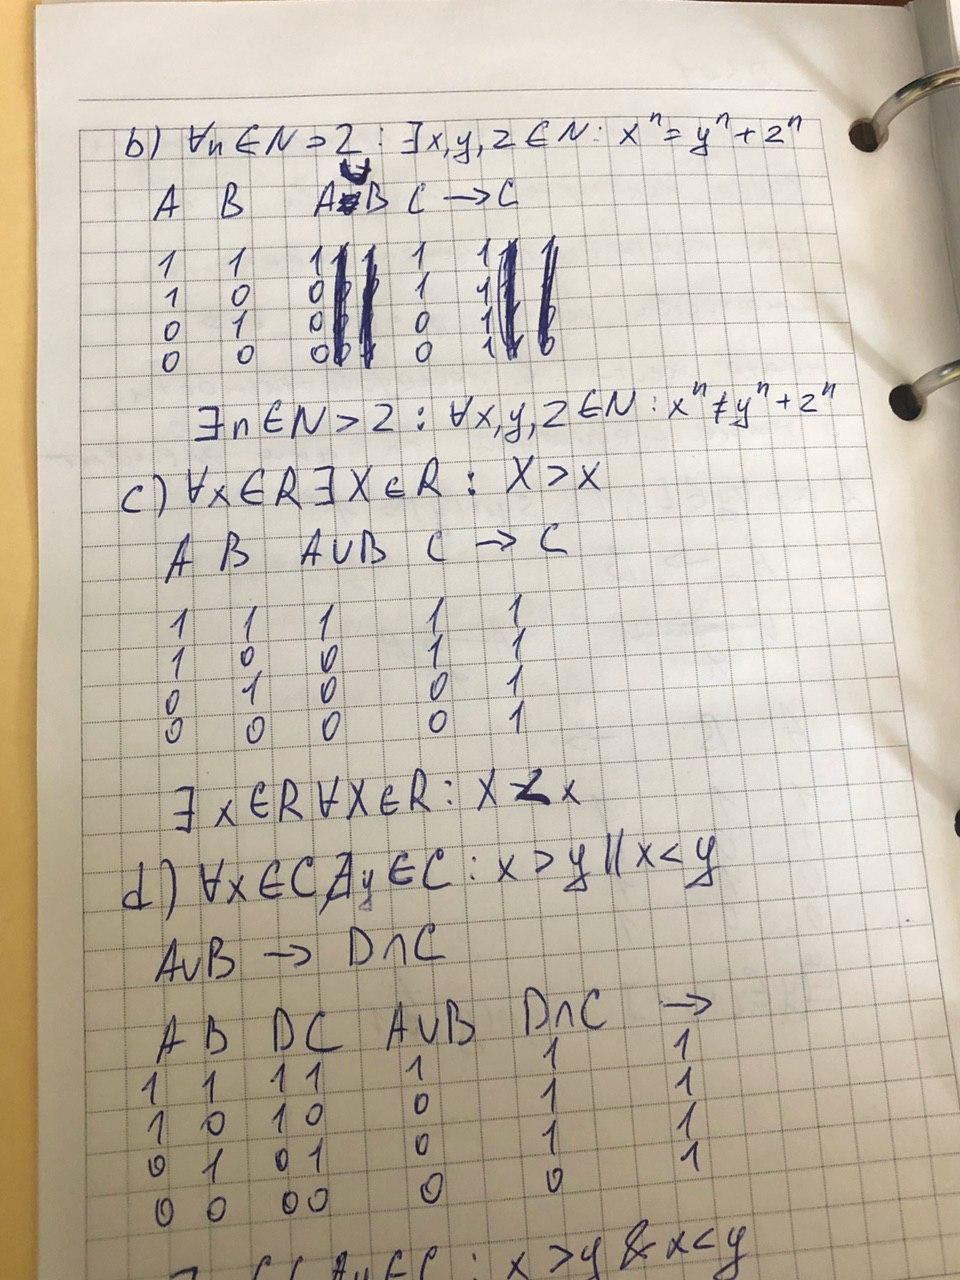 b) ∀n∈N>2 : ∃x,y,z∈N: xⁿ=yⁿ+zⁿ
A B A∪B C →C
1 1 1 1 1
1 0 0 1 1
0 1 0 0 1
0 0 0 0 1
∃n∈N>2 : ∀x,y,z∈N : xⁿ≠yⁿ+zⁿ
c) ∀x∈R ∃X∈R : X>x
A B A∪B C → C
1 1 1 1 1
1 0 0 1 1
0 1 0 0 1
0 0 0 0 1
∃x∈R ∀X∈R : X < x
d) ∀x∈C ∄y∈C : x>y || x<y
A∪B → D∩C
A B D C A∪B D∩C →
1 1 1 1 1 1 1
1 0 1 0 0 1 1
0 1 0 1 0 1 1
0 0 0 0 0 0 1
∀y∈C : x>y & x<y